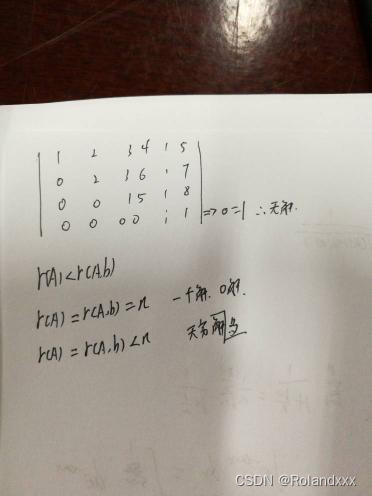 1 2 3 4 ⋮ 5
0 2 3 6 ⋮ 7
0 0 1 5 ⋮ 8
0 0 0 0 ⋮ 1 => 0=1 ∴无解.
r(A)<r(A,b)
r(A)=r(A,b)=n 一个解. 0解.
r(A)=r(A,b)<n 无穷
CSDN @Rolandxxx